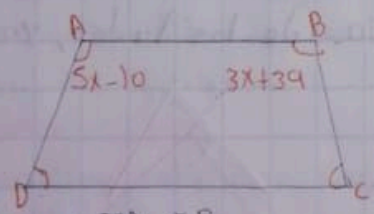 A B
5x-10 3x+39
D C